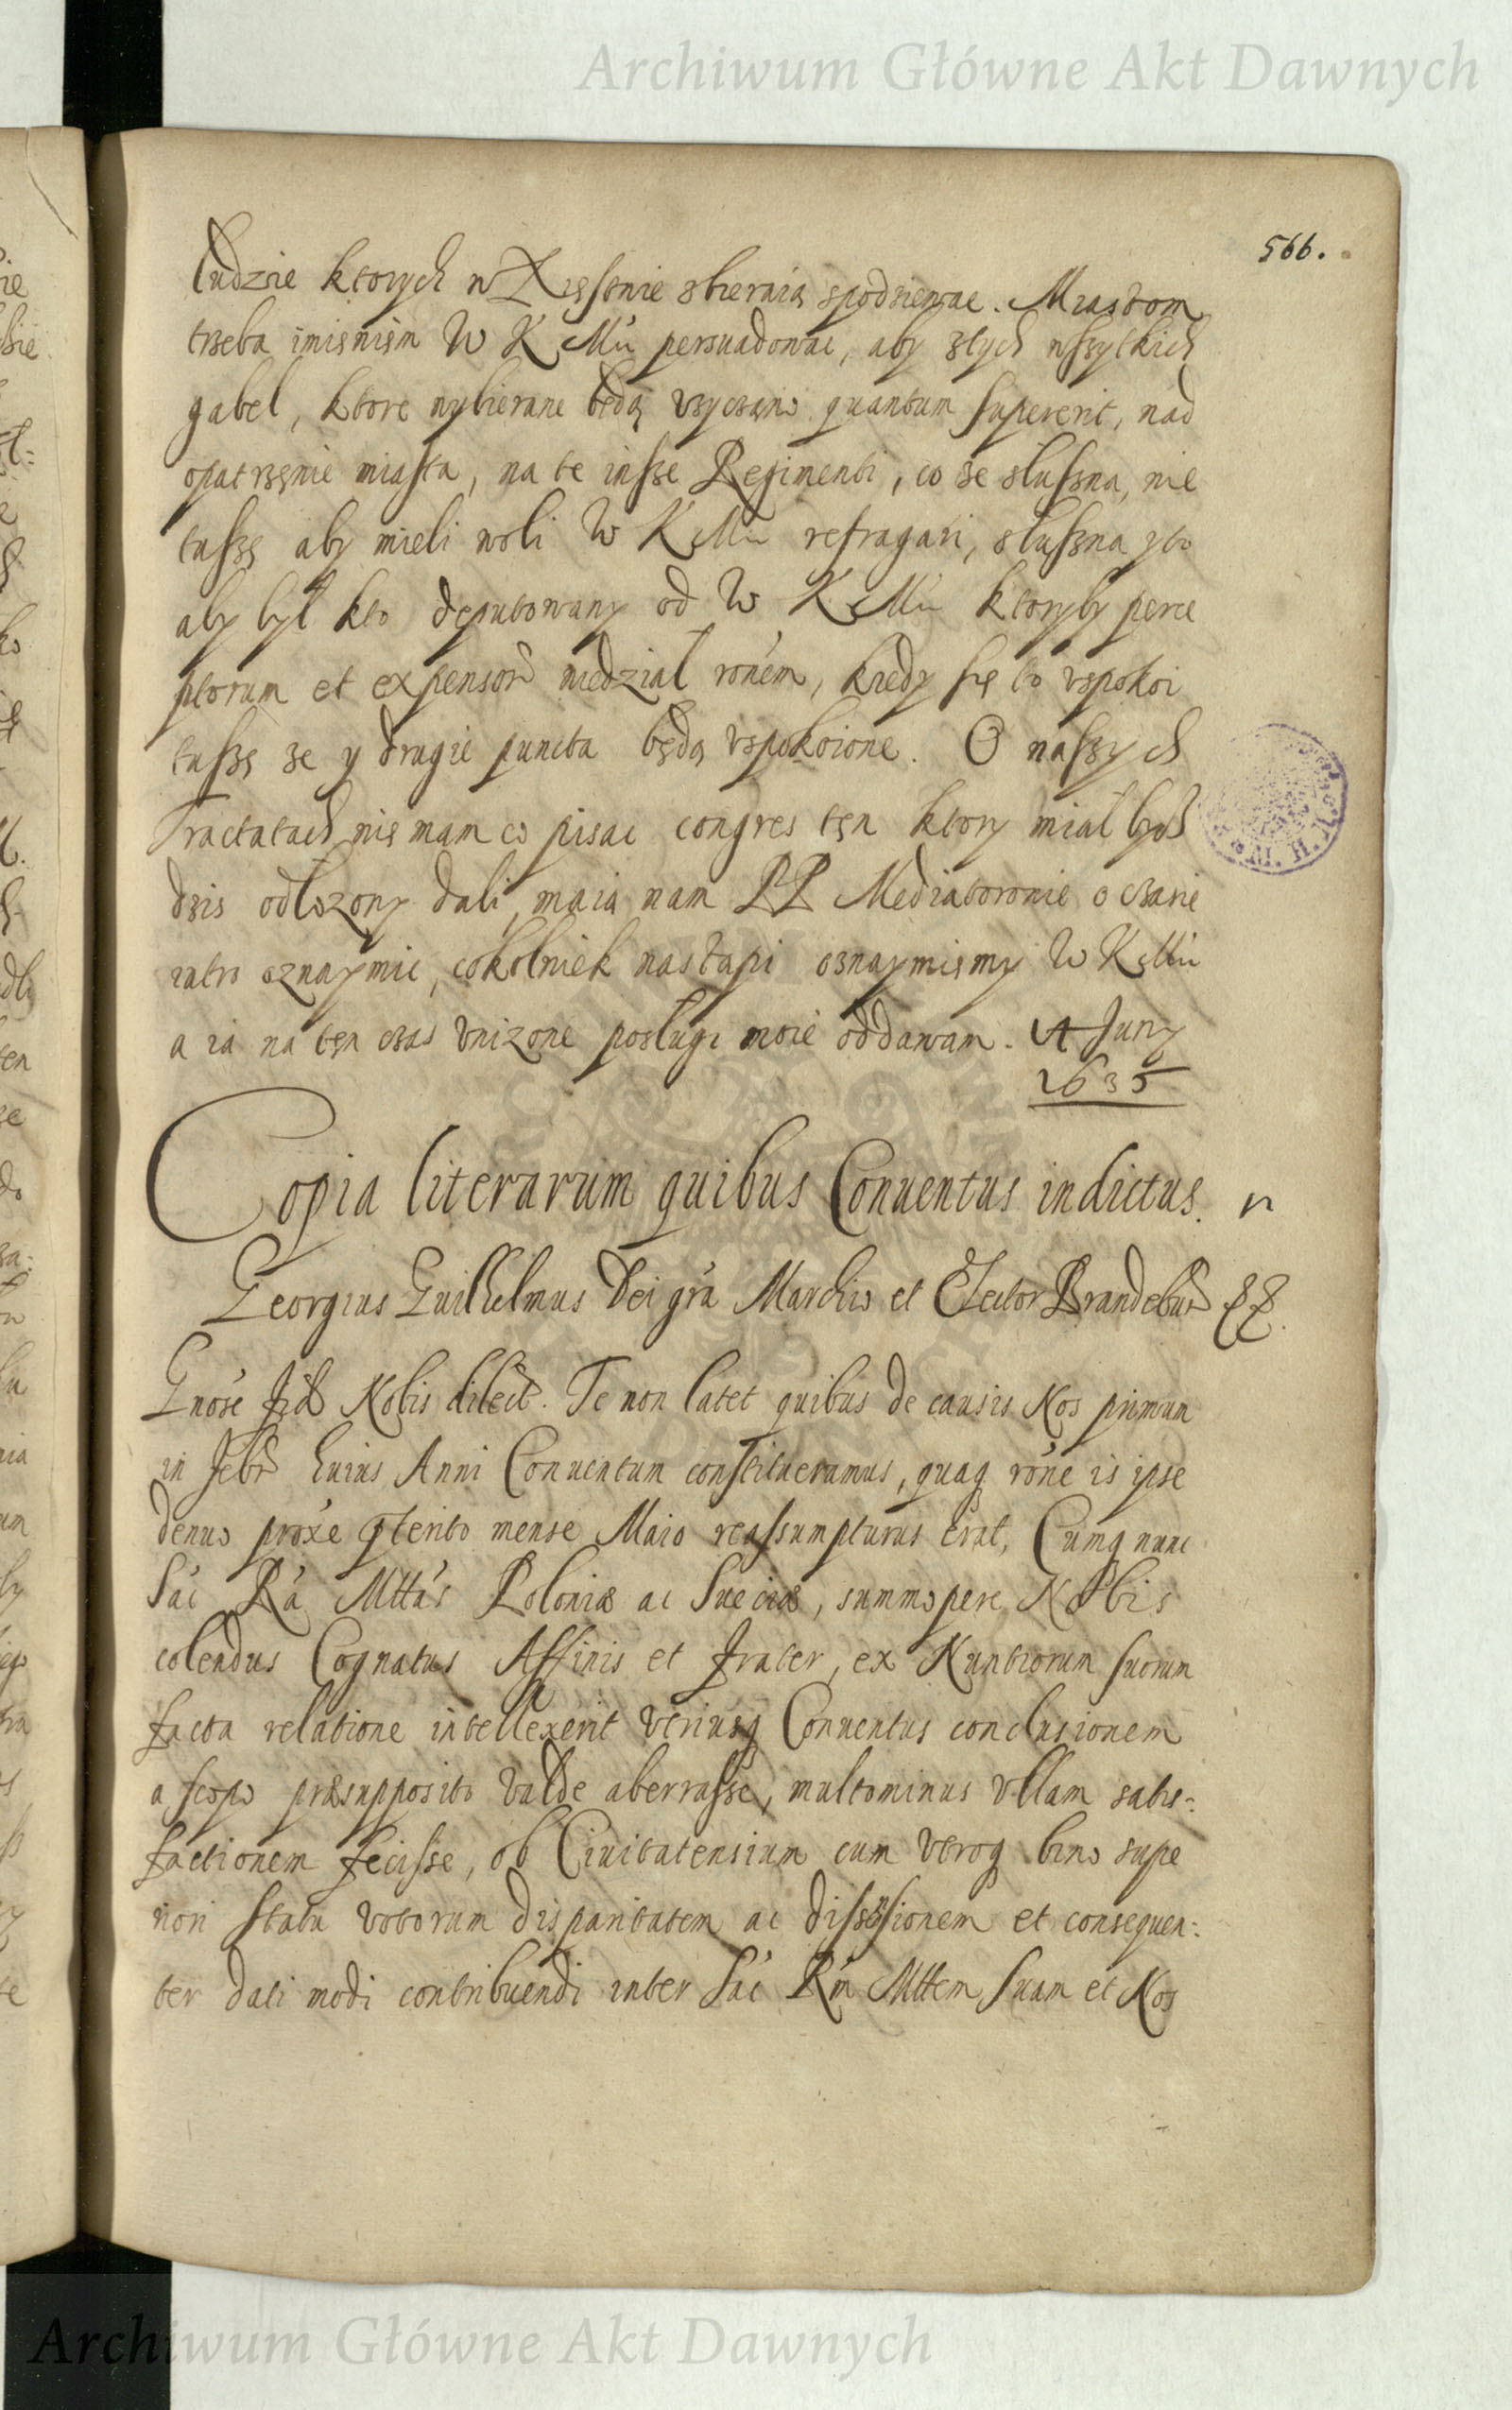 Archiwum Główne Akt Dawnych
566.
ludzie ktorych w Xięstwie zbieraią spodziewac. Miastom
trzeba imieniem W K Mći persuadowac, aby ztych wszytkich
gabel, ktore wybierane będą vzyczono quantum supererit, nad
opatrzenie miasta, na te insze Regimenti, co ze sluszna, nie
tuszę aby mieli woli W K Mći refragari, sluszna y to
aby był kto deputowany od W K Mći ktoryby perce
ptorum et expensorũ wiedzial ronem, kiedy się to vspokoi
tuszę ze y drugie puncta będą vspokoione. O naszych
Tractatach nie mam co pisac congres ten ktory mial bydz
dzis odłozony dali, maią nam PP Mediatorowie o czasie
iutro oznaymic, cokolwiek nastąpi oznaymiemy W K Mći
a ia na ten czas vnizone poslugi moie oddawam. 4 Juny
1635
Copia literarum quibus Conuentus indictus.
Georgius Guilhelmus Dei grã Marchio et Elector Brandebur
Gnõse Fid Nobis dilect. Te non latet quibus de causis Nos primum
in Febr huius Anni Conuentum constitueramus, quaq rõne is ipse
denuo proxe pterito mense Maio reassumpturus erat, Cumq nunc
Sac Ra Mttas Poloniæ ac Sueciæ, summopere Nobis
colendus Cognatus Affinis et Frater, ex Nuntiorum suorum
facta relatione intellexerit vtriusq Conuentus conclusionem
a scopo præsupposito valde aberrasse, multominus vllam satis-
factionem fecisse, ob Ciuitatensium cum vtroq bino supe
riori statu votorum disparitatem ac dissensionem et consequen-
ter dati modi contribuendi inter Sac Rm Mttem Suam et Nos
Archiwum Główne Akt Dawnych